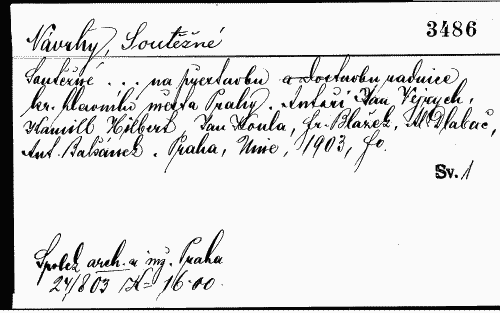 Návrhy, Soutěžné
3486
Soutěžné ... na přestavbu a dostavbu radnice
kr. hlavního města Prahy. Autoři: Jan Vejrych,
Kamill Hilbert, Jan Koula, Fr. Blažek, Al. Dlabač,
Ant. Balšánek. Praha, Unie, 1903, fo.
Sv. 1
Spolek arch. a inž. Praha
27/8 03 K= 16.00.